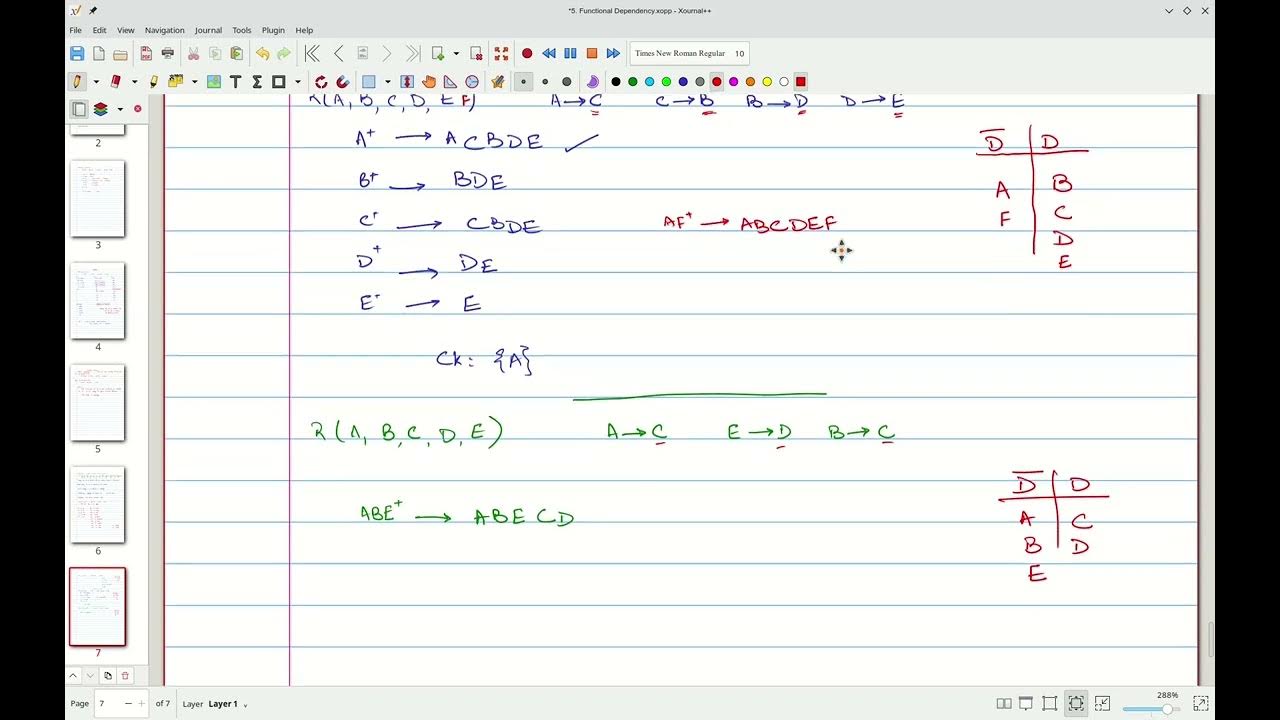 *5. Functional Dependency.xopp - Xournal++
File Edit View Navigation Journal Tools Plugin Help
Times New Roman Regular 10
R(A, B, C, D, E F) A→C C→B B→D D→E
A+ → ACBDE ✓
B+ → BDE
C+ → CBDE
D+ → DE
E+ → E
AF+ → ABCDEF
D̅ D
A B
F C
D
E
Ck: {A}
R(A, B, C, D, E) A→C E→D B→C
ABE+ → ABECD
D̅ D
A C
B D
E
2
3
4
5
6
7
Page 7 of 7 Layer Layer 1
288%